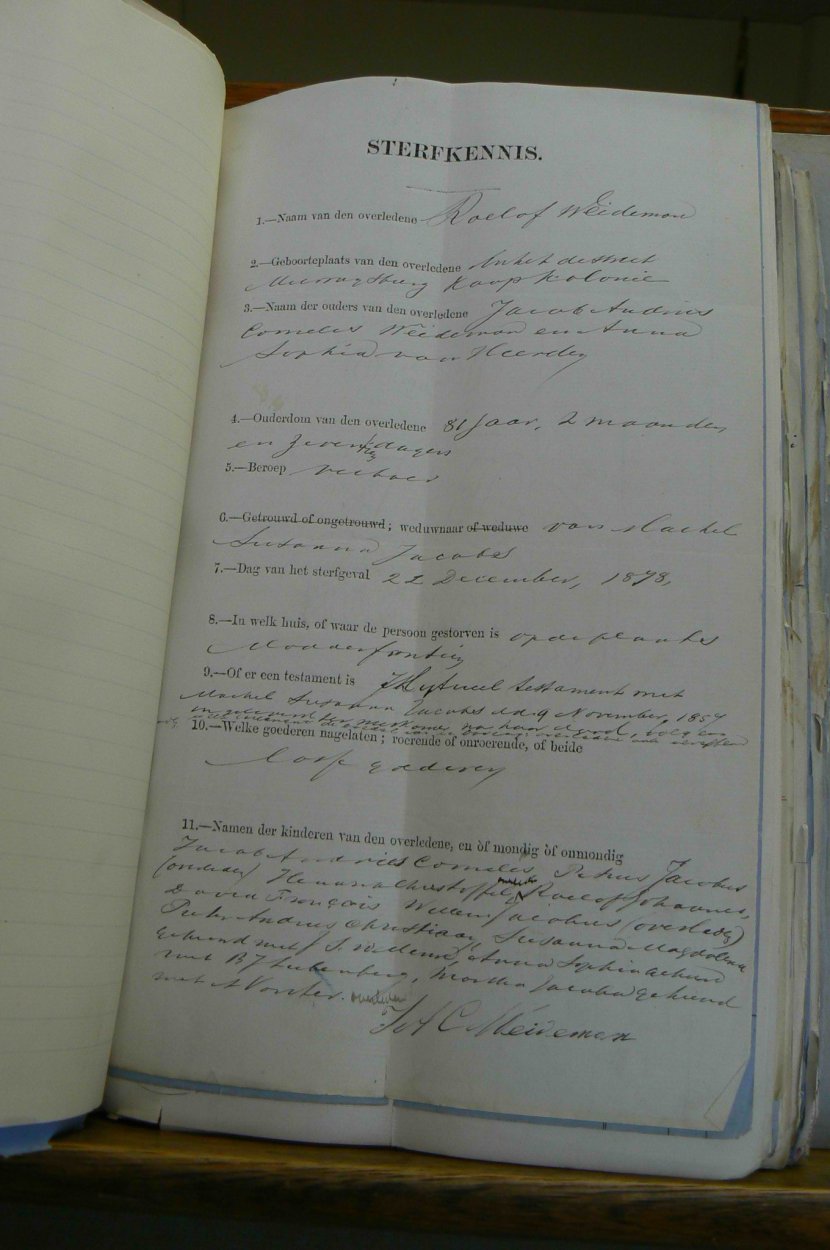 STERFKENNIS.
1.—Naam van den overledene Roelof Weideman
2.—Geboorteplaats van den overledene In het district
Murraysburg Kaap Kolonie
3.—Naam der ouders van den overledene Jacob Andries
Cornelis Weideman en Anna
Sophia van Heerden
4.—Ouderdom van den overledene 81 Jaar, 2 maanden
en zeven dagen
5.—Beroep veeboer
6.—Getrouwd of ongetrouwd; weduwnaar of weduwe van Machel
Susanna Jacobs
7.—Dag van het sterfgeval 22 December, 1878,
8.—In welk huis, of waar de persoon gestorven is op de plaats
Modderfontein
9.—Of er een testament is testament met
Machel Susanna Jacobs d.d. 9 November, 1857
10.—Welke goederen nagelaten; roerende of onroerende, of beide
Losse goederen
11.—Namen der kinderen van den overledene, en òf mondig òf onmondig
Jacob Andries Cornelis, Petrus Jacobus
(overleden) Hermanus Christoffel, Roelof Johannes,
David François Willem Jacobus (overleden)
Pieter Andries Christiaan, Susanna Magdalena
gehuwd met J. S. Anna Sophia gehuwd
met B J Liebenberg, Martha Jacoba gehuwd
met A Vorster. overleden
J A C Weideman